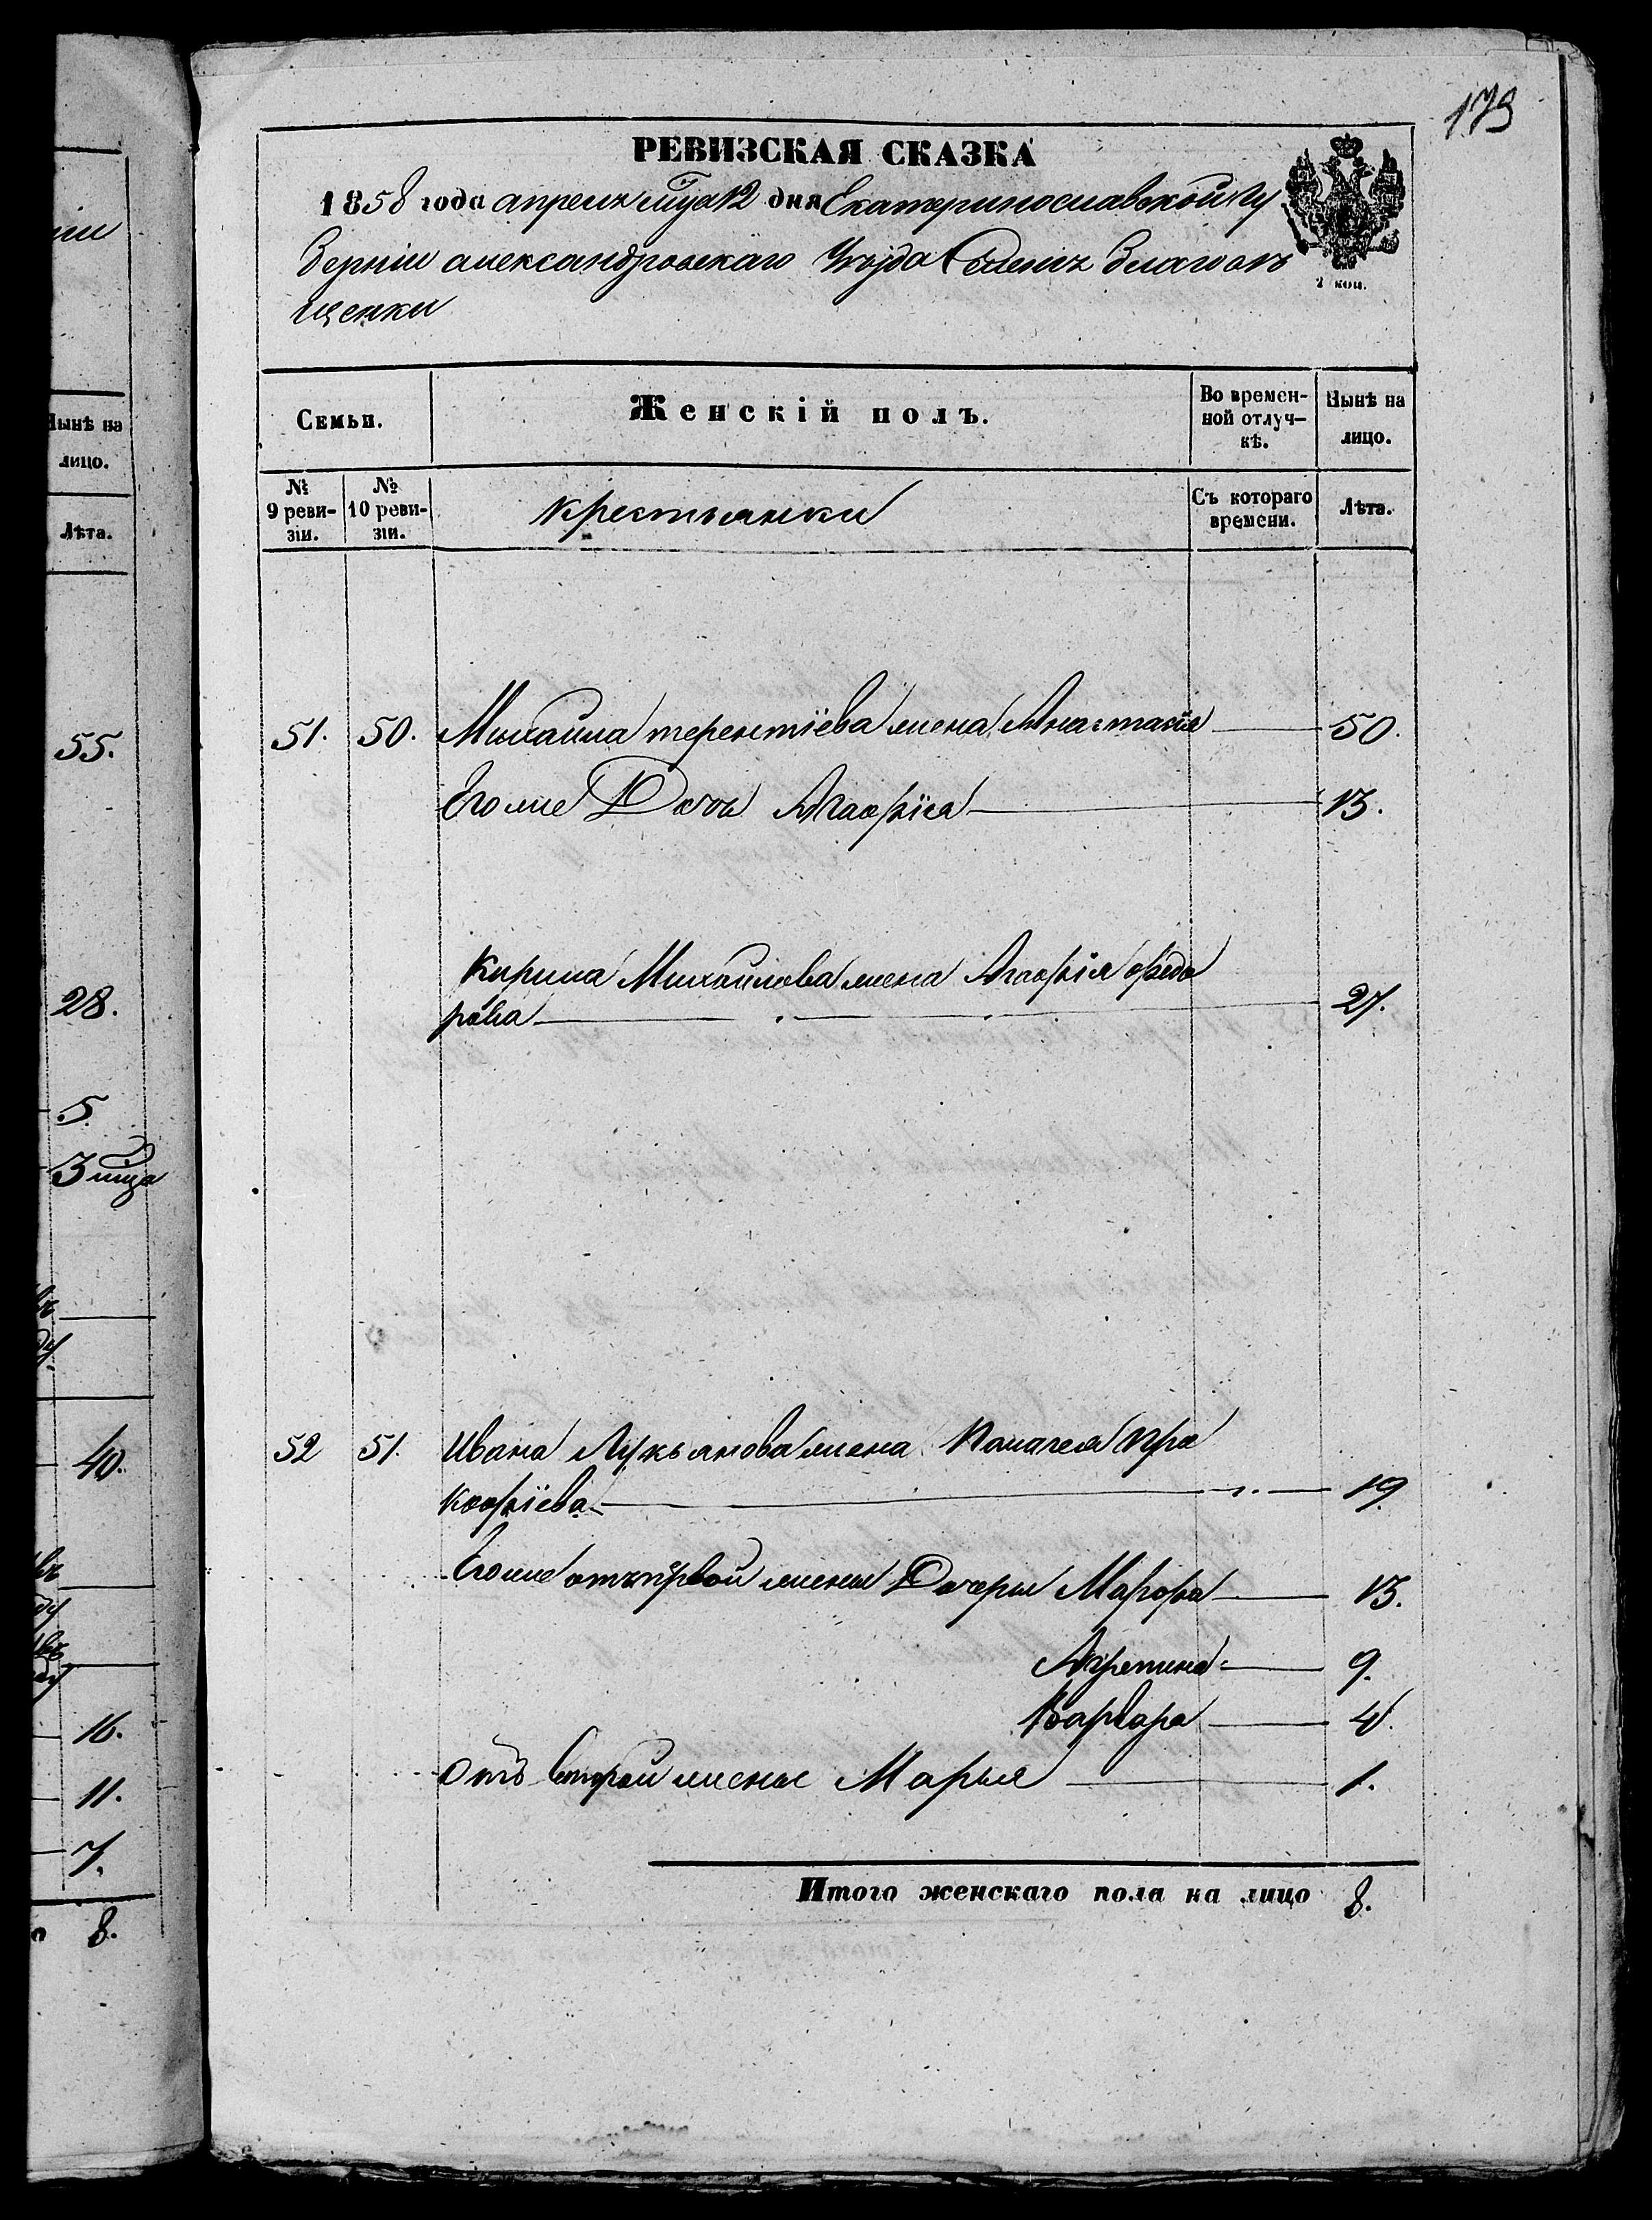 173
РЕВИЗСКАЯ СКАЗКА
1858 года апреля мца 12 дня Екатеринославской Гу
берніи александровскаго Уезда Селенія Благовѣ
щенки
2 коп.
Семьи.
Женскій полъ.
Во времен-
ной отлуч-
кѣ.
Нынѣ на
лицо.
№
9 реви-
зіи.
№
10 реви-
зіи.
крестьянки
Съ котораго
времени.
Лѣта.
51. 50. Михайла терентіева жена Анастасія 50.
Егоже Дочь Агафія 13.
Кирила Михайлова жена Агафія федо
рова 27.
52 51. Ивана Лукьянова жена Палагея Про
кофіева 19.
Егоже отъ первой жены Дочери Марфа 13.
Агрепина 9.
Варвара 4.
Отъ второй жены Марья 1.
Итого женскаго пола на лицо 8.
Нынѣ на
лицо.
Лѣта.
55.
28.
5.
3 мца
40.
16.
11.
7.
8.